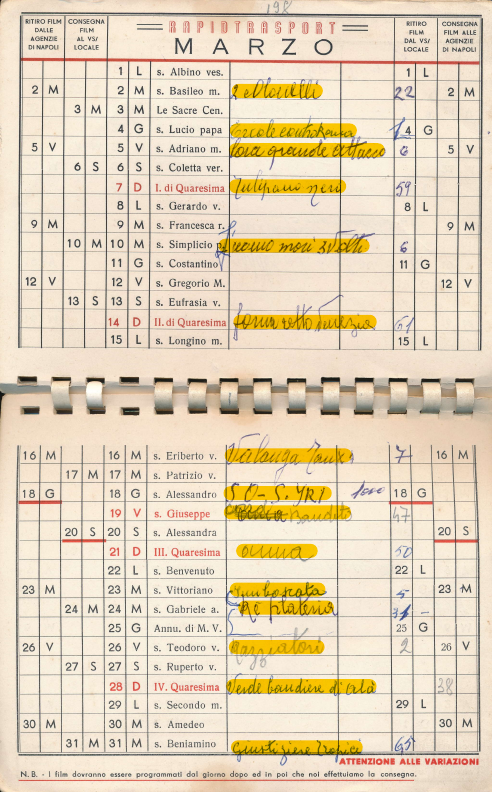 198
RITIRO FILM DALLE AGENZIE DI NAPOLI
CONSEGNA FILM AL VS/ LOCALE
RAPIDTRASPORT
MARZO
RITIRO FILM DAL VS/ LOCALE
CONSEGNA FILM ALLE AGENZIE DI NAPOLI
1 L s. Albino ves. 1 L
2 M 2 M s. Basileo m. 2 Monelli 22 2 M
3 M 3 M Le Sacre Cen.
4 G s. Lucio papa Ercole 4 G
5 V 5 V s. Adriano m. l'ora grande attacco 6 5 V
6 S 6 S s. Coletta ver.
7 D I. di Quaresima Tulipano nero 59
8 L s. Gerardo v. 8 L
9 M 9 M s. Francesca r. 9 M
10 M 10 M s. Simplicio p. l'uomo morì 3 volte 6
11 G s. Costantino 11 G
12 V 12 V s. Gregorio M. 12 V
13 S 13 S s. Eufrasia v.
14 D II. di Quaresima sotto Venezia 61
15 L s. Longino m. 15 L
16 M 16 M s. Eriberto v. Valanga 7 16 M
17 M 17 M s. Patrizio v.
18 G 18 G s. Alessandro 1000 18 G
19 V s. Giuseppe Bandito 47
20 S 20 S s. Alessandra 20 S
21 D III. Quaresima donna 50
22 L s. Benvenuto 22 L
23 M 23 M s. Vittoriano Imboscata 5 23 M
24 M 24 M s. Gabriele a. Re 31 -
25 G Annu. di M. V. 25 G
26 V 26 V s. Teodoro v. Razziatori 2 26 V
27 S 27 S s. Ruperto v.
28 D IV. Quaresima Verde bandiera di Allà 38
29 L s. Secondo m. 29 L
30 M 30 M s. Amedeo 30 M
31 M 31 M s. Beniamino Giustiziere Tropici 65
ATTENZIONE ALLE VARIAZIONI
N. B. - I film dovranno essere programmati dal giorno dopo ed in poi che noi effettuiamo la consegna.